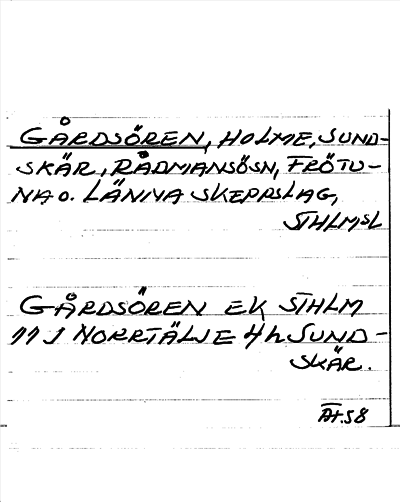 GÅRDSÖREN, HOLME, SUND-
SKÄR, RÅDMANSÖSN, FRÖTU-
NA O. LÄNNA SKEPPSLAG,
STHLMSL
GÅRDSÖREN EK STHLM
11 J NORRTÄLJE 4 h SUND-
SKÄR.
ÄT.58